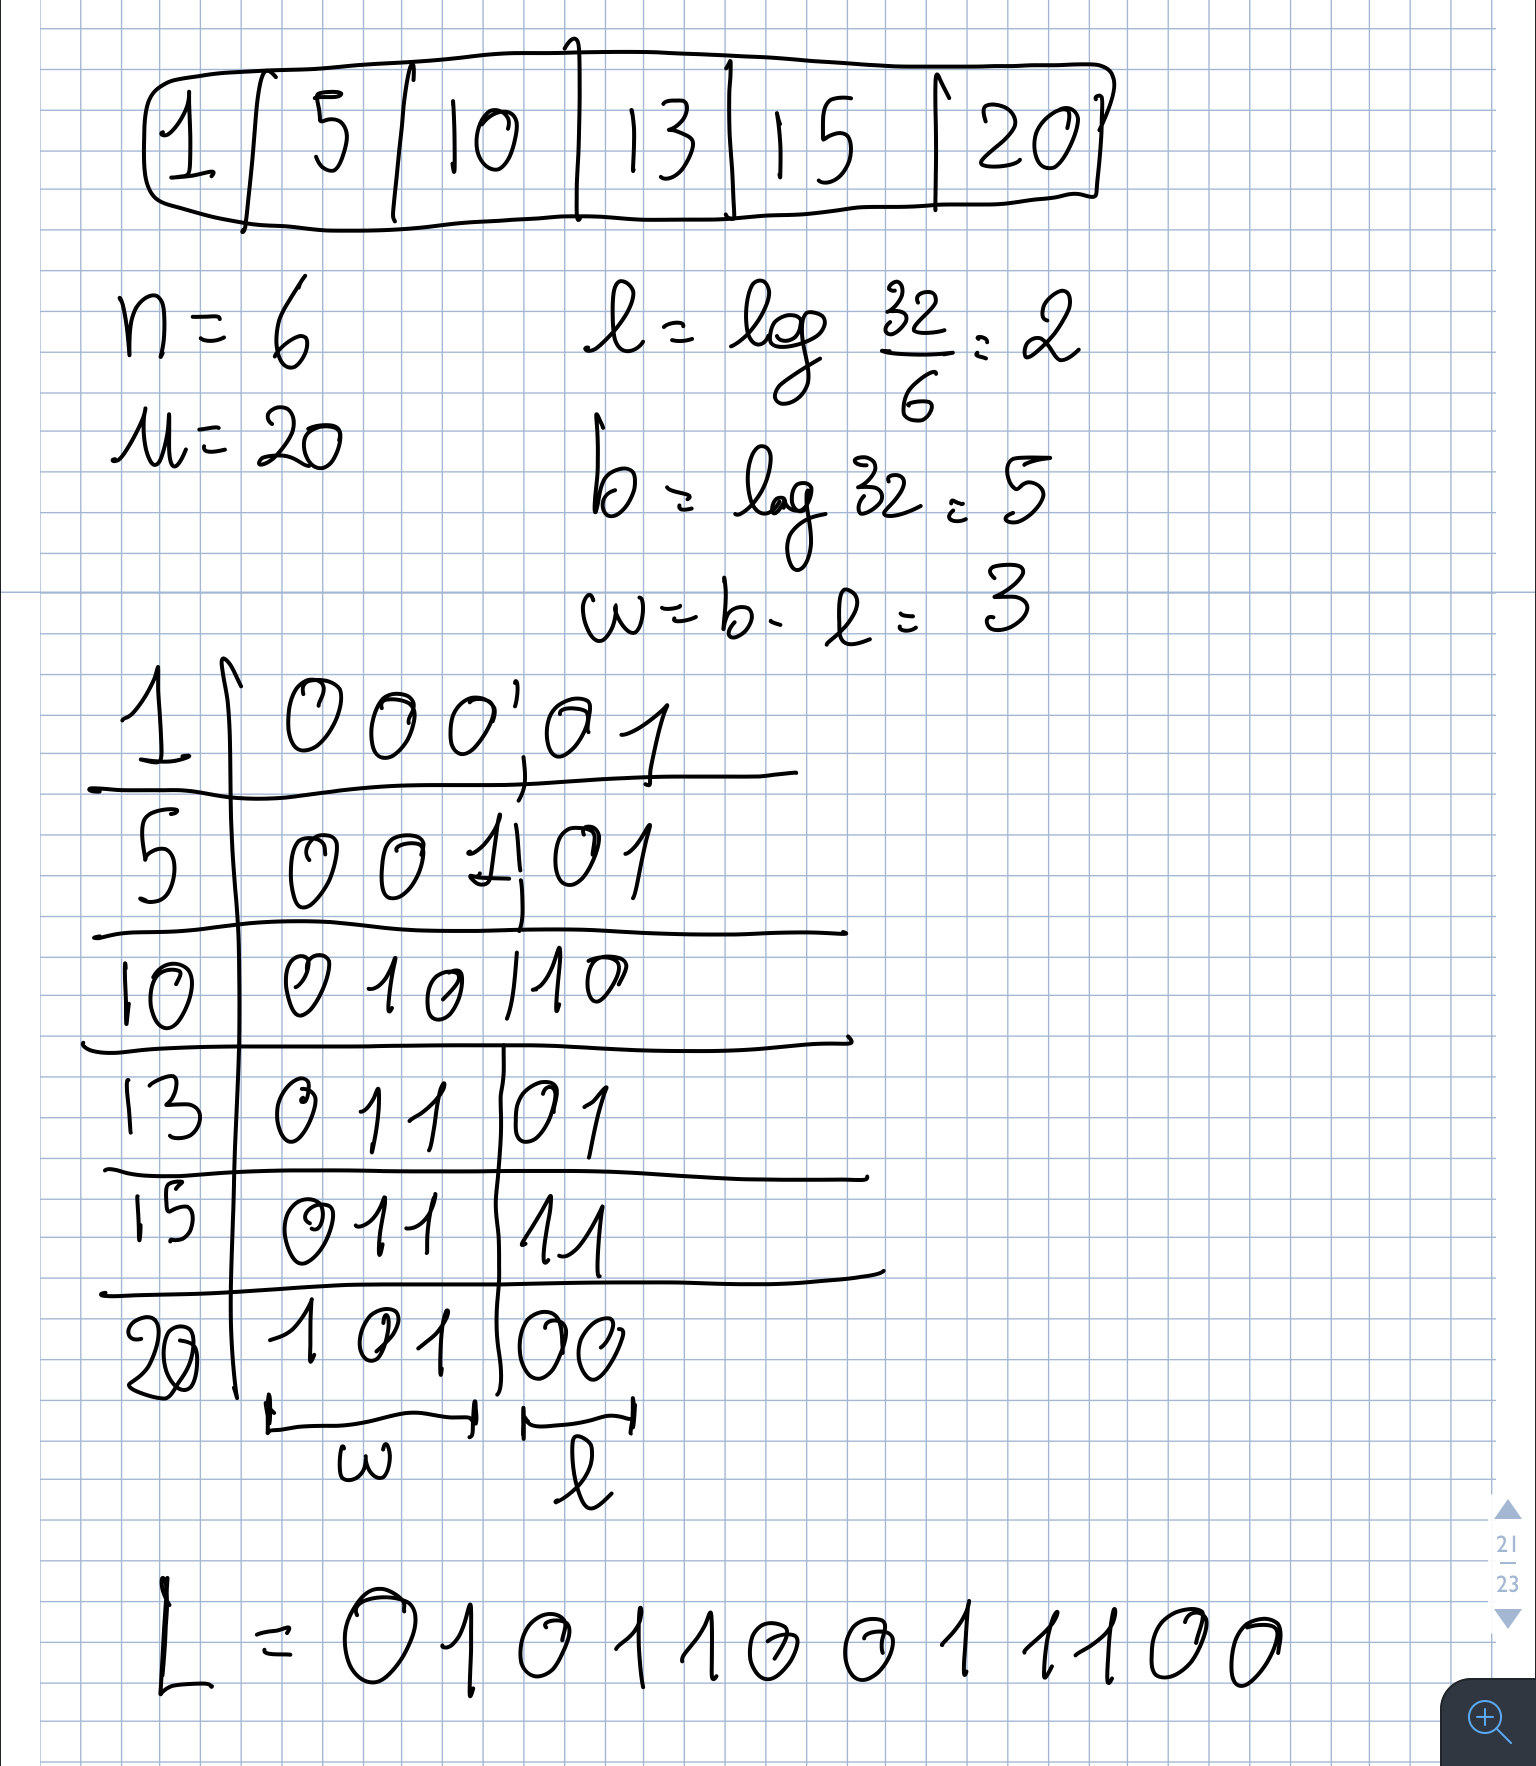 1 5 10 13 15 20
n = 6
l = log 32/6 = 2
u = 20
b = log 32 = 5
w = b - l = 3
1 000 01
5 001 01
10 010 10
13 011 01
15 011 11
20 101 00
w l
L = 010110011100
21
23